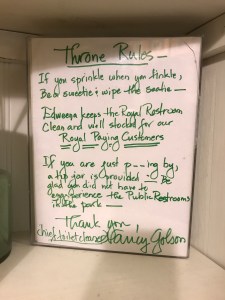 Throne Rules —
If you sprinkle when you tinkle,
Be a sweetie & wipe the seatie —
Edweena keeps the Royal Restroom
Clean and well stocked for our
Royal Paying Customers
If you are just p--ing by,
a tip jar is provided — Be
glad you did not have to
experience the Public Restrooms
in the park —
Thank you,
chief toilet cleaner Nancy Gotson